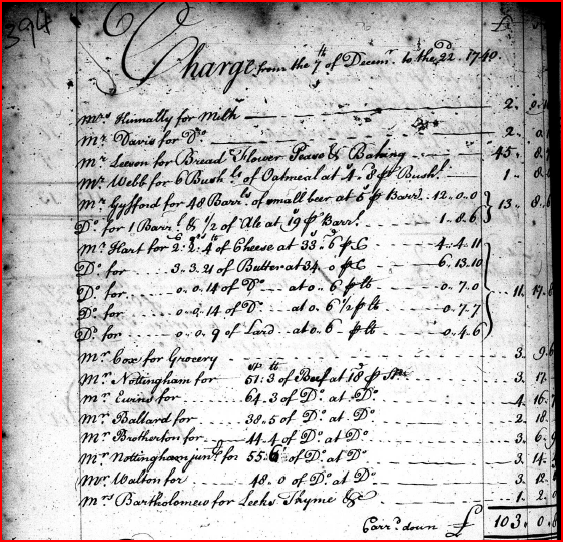 394
£ s
Charge from the 7th of Decemr. to the 22d. 1740.
Mrs Kumally for Milk 2.
Mr. Davis for Do. 2. 0.
Mr Leeson for Bread Flower Pease & Baking 45. 8.
Mr. Webb for 6 Bushls of Oatmeal at 4.8 p Bushl. 1. 8
Mr. Gyfford for 48 Barrls of small beer at 5s p Barrl. 12..0..0 13. 8.
Do. for 1 Barrl. & 1/2 of Ale at 19s p Barrl. 1..8..6
Mr. Hart for 2. 2. 4 of Cheese at 33s. 6d p C 4..4..11
Do. for 3..3..21 of Butter at 34..0 p C 6..13..10
Do. for 0..0..14 of Do at 0..6 p lb 0..7..0 11. 17.
Do. for 0..0..14 of Do. at 0..6 1/2 p lb 0..7..7
Do. for 0..0..9 of Lard at 0..6 p lb 0..4..6
Mr. Cox for Grocery 3. 9.
st lb
Mr. Nottingham for 51:3 of Beef at 18d p St. 3. 17.
Mr Ewins for 64.3 of Do. at Do 4. 16.
Mr. Ballard for 38..5 of Do. at Do 2. 18
Mr. Brotherton for 44..4 of Do. at Do 3. 6.
Mr Nottingham junr. for 55:6 of Do. at Do 3. 14.
Mr. Walton for 48..0 of Do. at Do 3. 12
Mrs Bartholomew for Leeks Thyme &c 1. 2.
Carrd. down £ 103. 0.